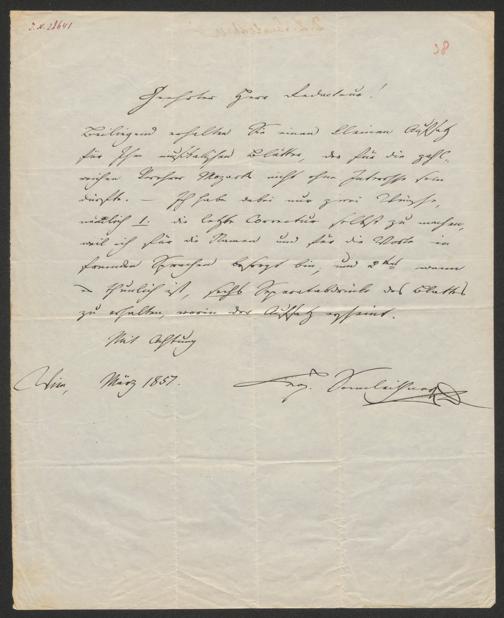 I.N. 28641
38
Geehrter Herr Redacteur!
Beiliegend erhalten Sie einen kleinen Aufsatz
für Ihre musikalischen Blätter, der für die zahl-
reichen Verehrer Mozarts nicht ohne Interesse sein
dürfte. — Ich habe dabei nur zwei Wünsche,
nämlich 1. die letzte Correctur selbst zu machen,
weil ich für die Namen und für die Worte in
fremden Sprachen besorgt bin, und 2tens wenn
es thunlich ist, sechs Separatabdrücke des Blattes
zu erhalten, worin der Aufsatz erscheint.
Mit Achtung
Wien, März 1857. Sonnleithner